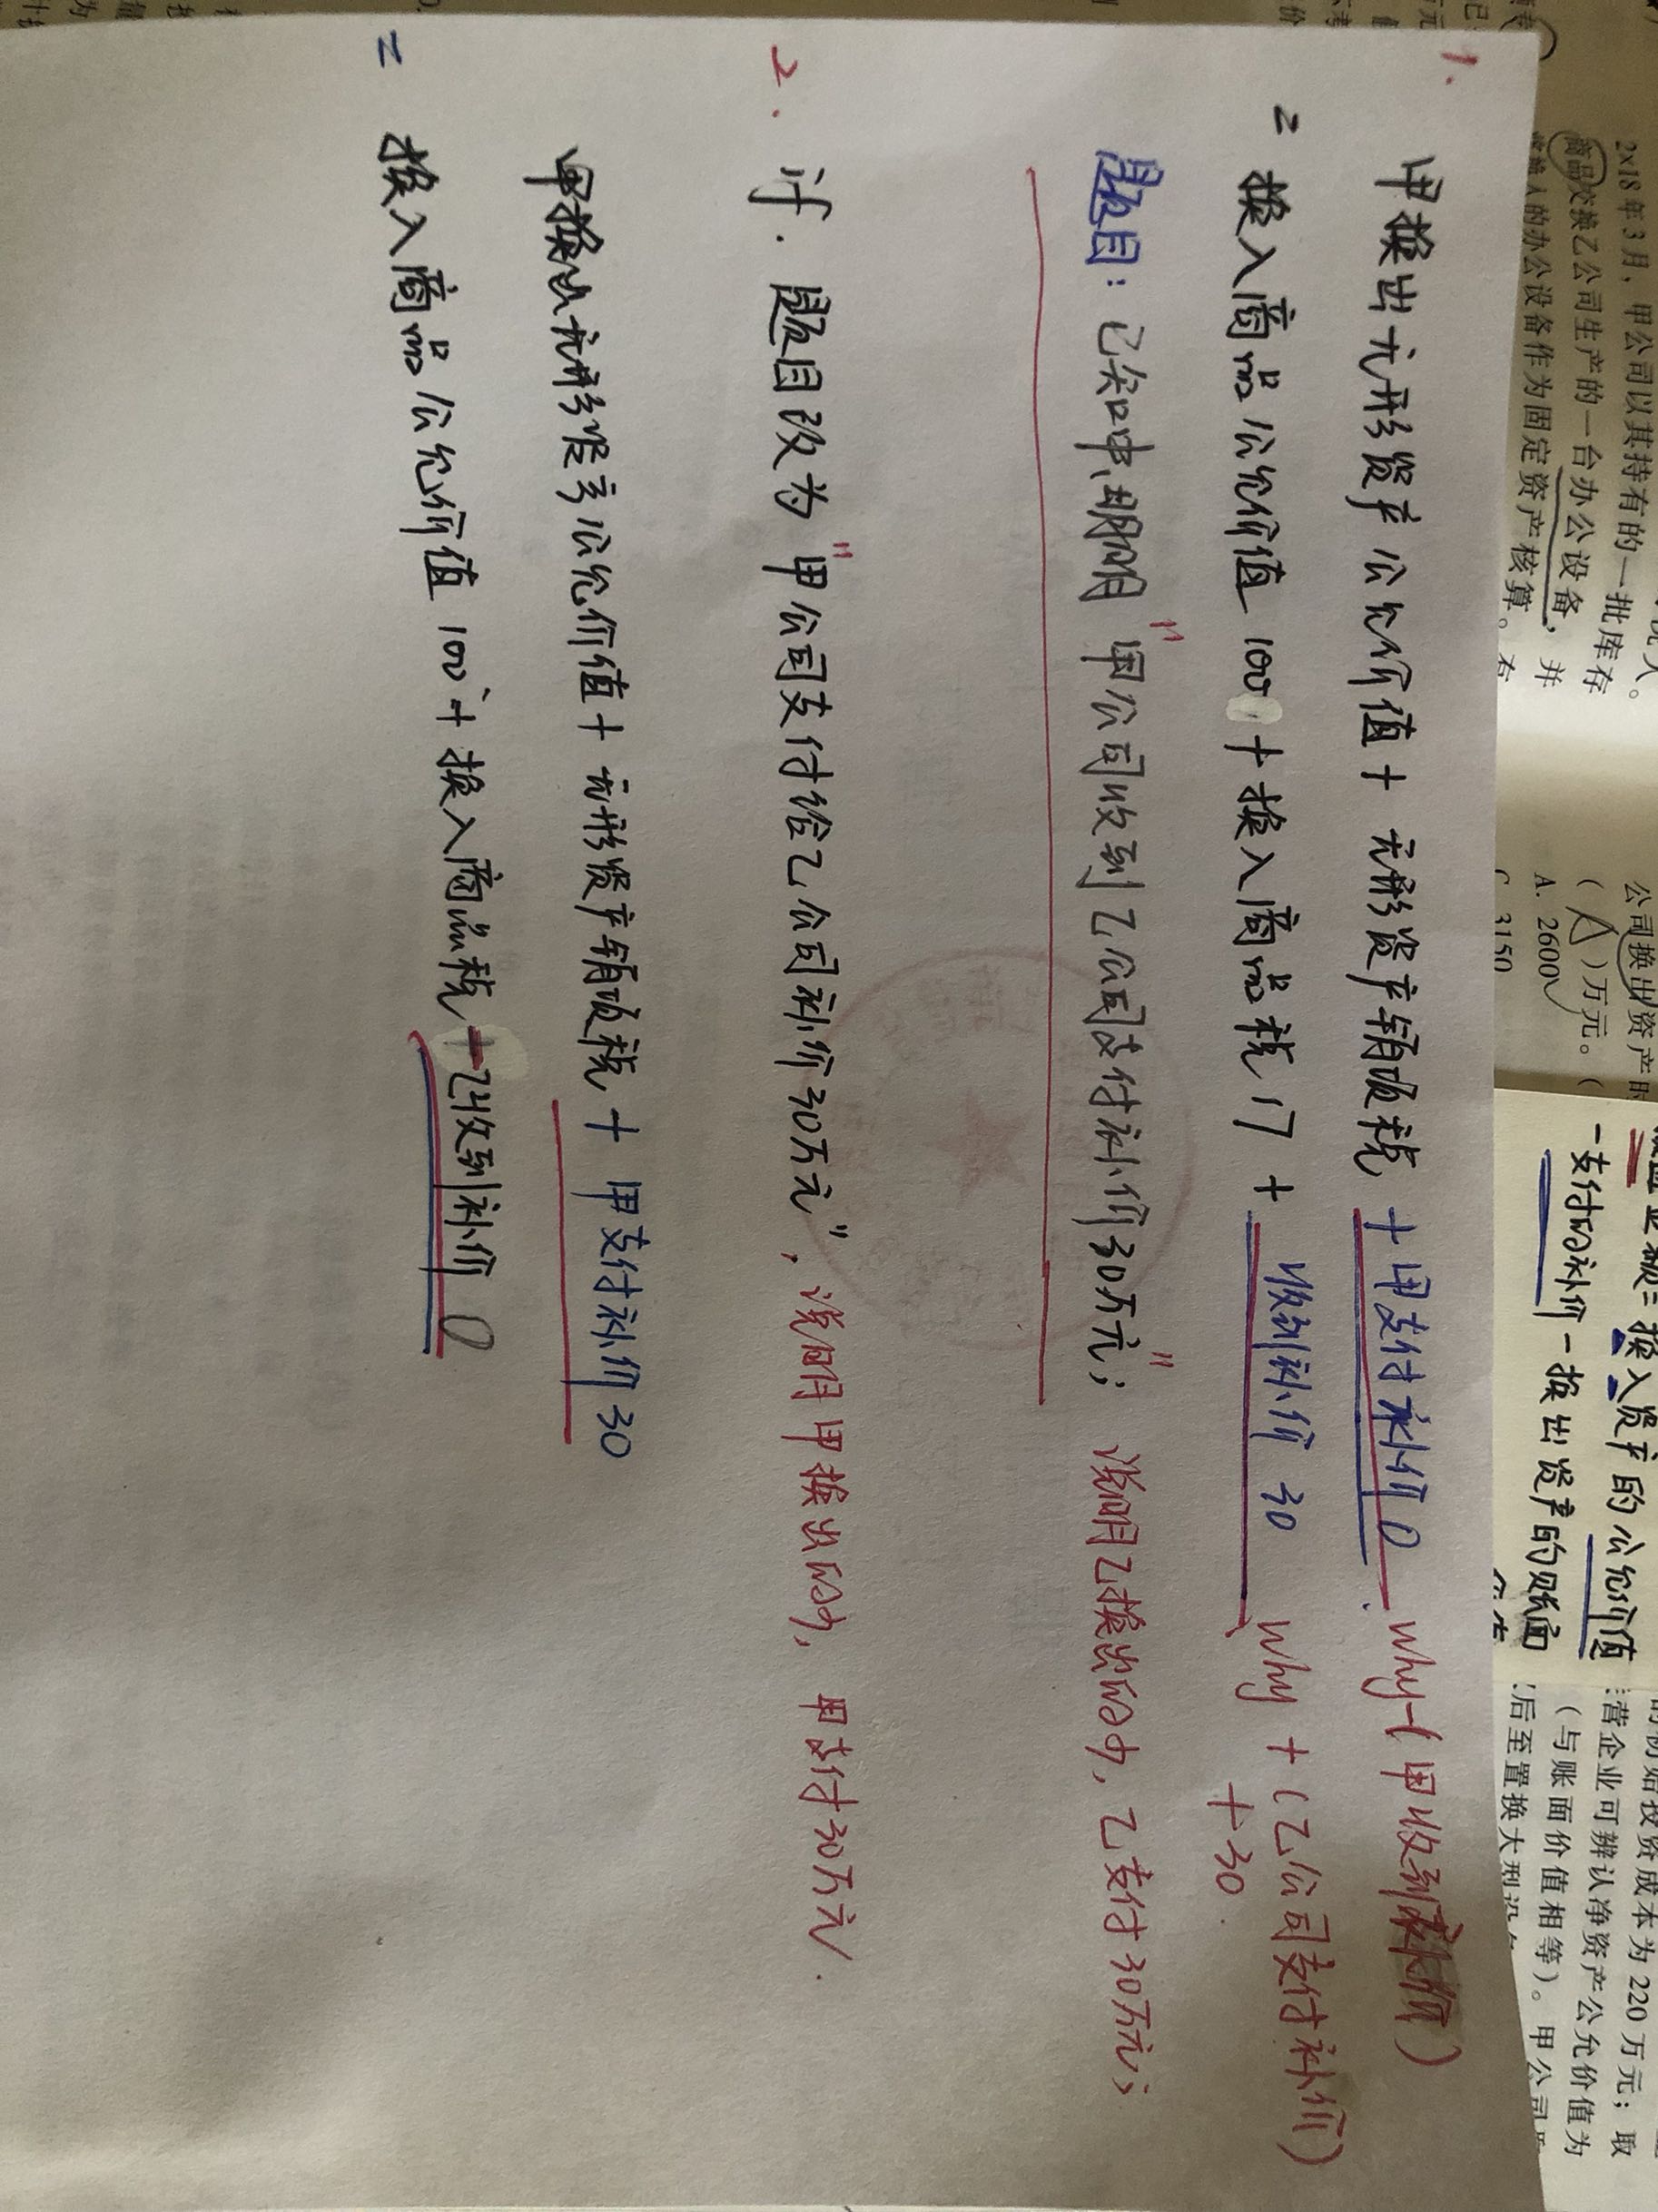 1.
甲换出无形资产公允价值 + 无形资产销项税 + 甲支付补价 0. why-(甲收到补价)
= 换入商品公允价值 100 + 换入商品税 17 + 收到补价 30 why + (乙公司支付补价)
+30
题目: 已知中,明明 "甲公司收到乙公司支付补价30万元"; 说明乙换出的少, 乙支付30万元;
2. if. 题目改为 "甲公司支付给乙公司补价30万元", 说明甲换出的少, 甲支付30万元.
甲换出无形资产公允价值 + 无形资产销项税 + 甲支付补价 30
= 换入商品公允价值 100 + 换入商品税 + 乙收到补价 0
2×18年3月,甲公司以其持有的一批库存
商品交换乙公司生产的一台办公设备,并
输入的办公设备作为固定资产核算。
公司换出资产
(A)万元。(
A. 2600
3150
换入资产的公允价值
-支付的补价-换出资产的账面
初始投资成本为220万元;取
营企业可辨认净资产公允价值为
(与账面价值相等)。甲公司
后至置换大型